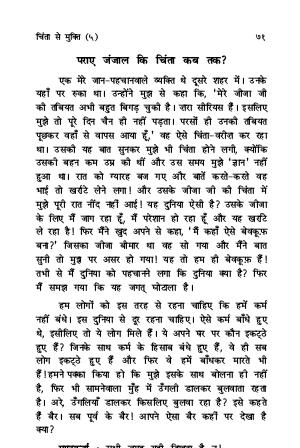 चिंता से मुक्ति (५) ७१
पराए जंजाल कि चिंता कब तक?
एक मेरे जान-पहचानवाले व्यक्ति थे दूसरे शहर में। उनके
यहाँ पर रुका था। उन्होंने मुझ से कहा कि, 'मेरे जीजा जी
की तबियत अभी बहुत बिगड़ चुकी है। ज़रा सीरियस हैं। इसलिए
मुझे तो पूरे दिन चैन ही नहीं पड़ता। परसों ही उनकी तबियत
पूछकर वहाँ से वापस आया हूँ,' वह ऐसे चिंता-वरीज़ कर रहा
था। उसकी यह बात सुनकर मुझे भी चिंता होने लगी, क्योंकि
उसकी बहन कम उम्र की थीं और उस समय मुझे 'ज्ञान' नहीं
हुआ था। रात को ग्यारह बज गए और बातें करते-करते वह
भाई तो खर्राटे लेने लगा! और उसके जीजा जी की चिंता में
मुझे पूरी रात नींद नहीं आई! यह दुनिया ऐसी है? उसके जीजा
के लिए मैं जाग रहा हूँ, मैं परेशान हो रहा हूँ और यह खर्राटे
ले रहा है! फिर मैंने खुद अपने से कहा, 'मैं कहाँ ऐसे बेवकूफ़
बना?' जिसका जीजा बीमार था वह सो गया और मैंने बात
सुनी तो मुझ पर असर हो गया! यह तो हम ही बेवकूफ़ हैं!
तभी से मैं दुनिया को पहचानने लगा कि दुनिया क्या है? फिर
मैं समझ गया कि यह जगत् घोटाला है।
हम लोगों को इस तरह से रहना चाहिए कि हमें कर्म
नहीं बंधे। इस दुनिया से दूर रहना चाहिए। ऐसे कर्म बाँधे हुए
थे, इसीलिए तो ये लोग मिले हैं। ये अपने घर पर कौन इकट्ठे
हुए हैं? जिनके साथ कर्म के हिसाब बंधे हुए हैं, वे ही सब
लोग इकट्ठे हुए हैं और फिर वे हमें बाँधकर मारते भी
हैं! हमने पक्का किया हो कि मुझे इसके साथ बोलना ही नहीं
है, फिर भी सामनेवाला मुँह में उँगली डालकर बुलवाता रहता
है। अरे, उँगलियाँ डालकर किसलिए बुलवा रहा है? इसे कहते
हैं बैर। सब पूर्व के बैर! आपने ऐसा बैर कहीं पर देखा है
क्या?